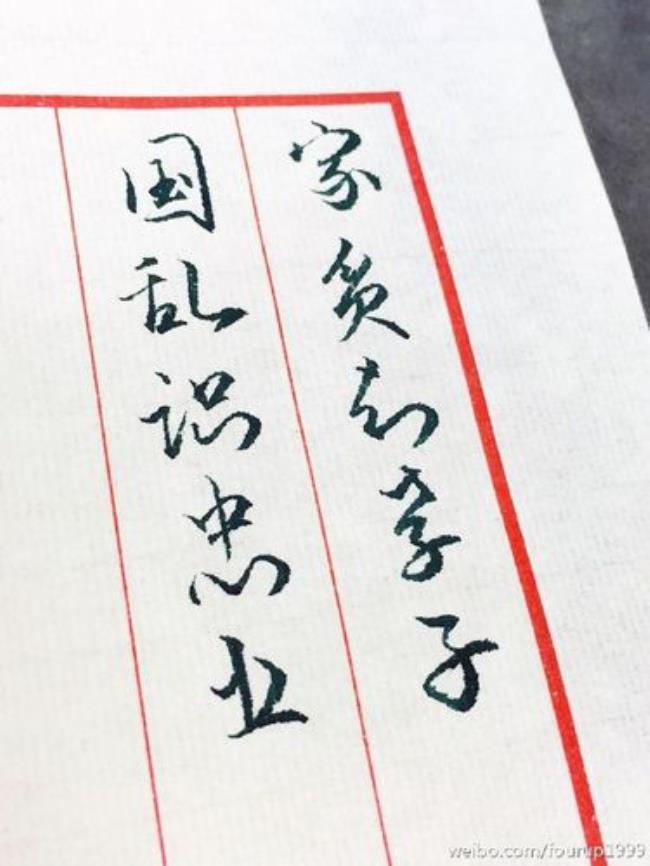 家贫知孝子
国乱识忠臣
weibo.com/fourup1999